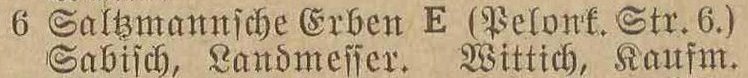 6 Saltzmannsche Erben E (Pelonk. Str. 6.)
Sabisch, Landmesser. Wittich, Kaufm.